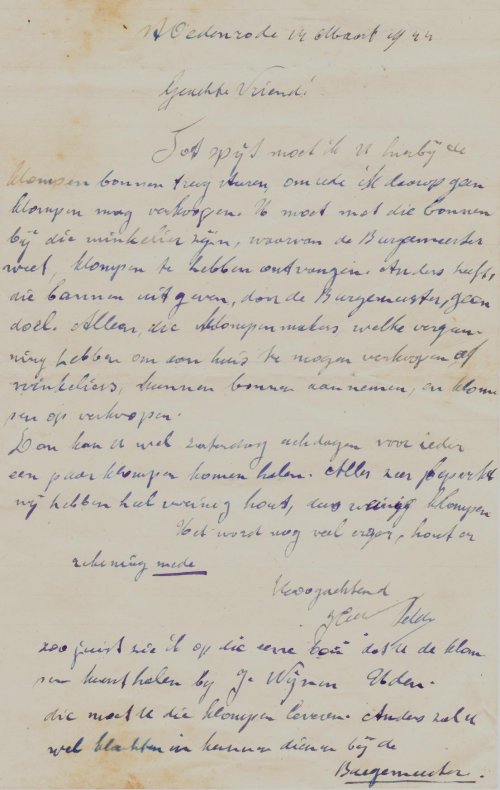 St Oedenrode 14 Maart 1944
Geachte Vriend!
Tot spijt moet ik U hierbij de
klompen bonnen trug sturen, omdde ik daarop geen
klompen mag verkoopen. U moet met die bonnen
bij die winkelier zijn, waarvan de Burgemeester
weet, klompen te hebben ontvangen. Anders heeft,
die bonnen uitgeven, door de Burgemeester, geen
doel. Alleen, die klompenmakers welke vergun-
ning hebben om aan huis te mogen verkoopen of
winkeliers, kunnen bonnen aannemen, en klom
pen op verkoopen.
Dan kan U wel zaterdag achdagen voor ieder
een paar klompen komen halen. Alles zeer beperkt
wij hebben heel weinig hout, dus weinig klompen
Het word nog veel erger, hout er
rekening mede
Hoogachtend
zoo juist zie ik op die eene bon dat U de klom
pen kunt halen bij J. Wijnen Uden.
die moet U die klompen leveren. Anders zal U
wel klachten in kunnen dienen bij de
Burgemeester.